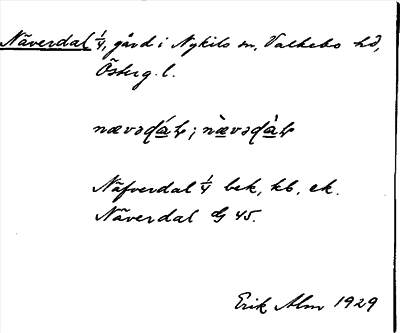 Näverdal 1/4, gård i Nykils sn, Valkebo hd,
Österg. l.
nævədá̱ɫ; næ̀vədà̱ɫ
Näfverdal 1/4 bek, kb, ek.
Näverdal G 45.
Erik Alm 1929